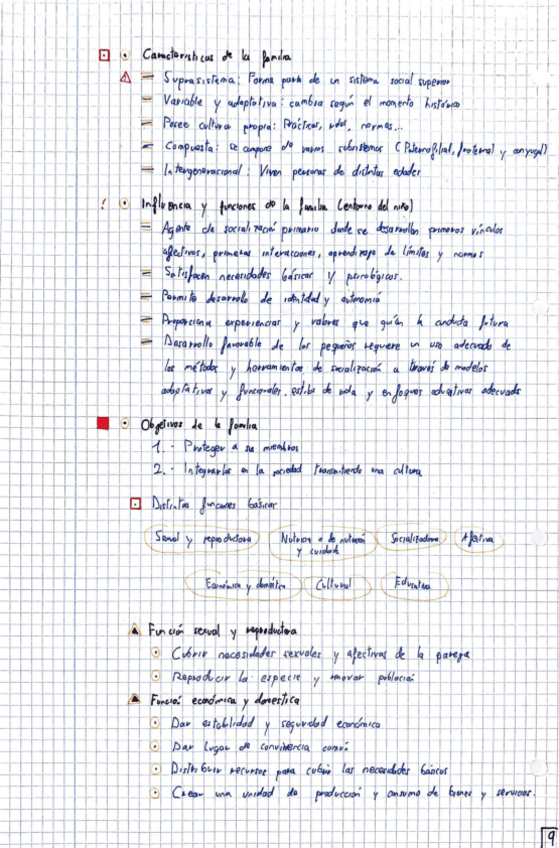 Características de la familia
Suprasistema: Forma parte de un sistema social superior
Variable y adaptativa: cambia según el momento histórico
Posee cultura propia: Prácticas, roles, normas...
Compuesta: se compone de varios subsistemas (Paternofilial, fraternal y conyugal)
Intergeneracional: Viven personas de distintas edades
! Influencia y funciones de la familia (entorno del niño)
Agente de socialización primario donde se desarrollan primeros vínculos
afectivos, primeras interacciones, aprendizaje de límites y normas
Satisfacen necesidades básicas y psicológicas.
Permite desarrollo de identidad y autonomía
Proporciona experiencias y valores que guían la conducta futura
Desarrollo favorable de los pequeños requiere un uso adecuado de
los métodos y herramientas de socialización a través de modelos
adaptativos y funcionales, estilos de vida y enfoques educativos adecuados
Objetivos de la familia
1.- Proteger a sus miembros
2.- Integrarlos en la sociedad transmitiendo una cultura
Distintas funciones básicas
Sexual y reproductora Nutricia o de nutrición Socializadora Afectiva
y cuidado
Económica y doméstica Cultural Educativa
Función sexual y reproductora
Cubrir necesidades sexuales y afectivas de la pareja
Reproducir la especie y renovar población
Función económica y domestica
Dar estabilidad y seguridad económica
Dar lugar de convivencia común
Distribuir recursos para cubrir las necesidades básicas
Crear una unidad de producción y consumo de bienes y servicios.
9